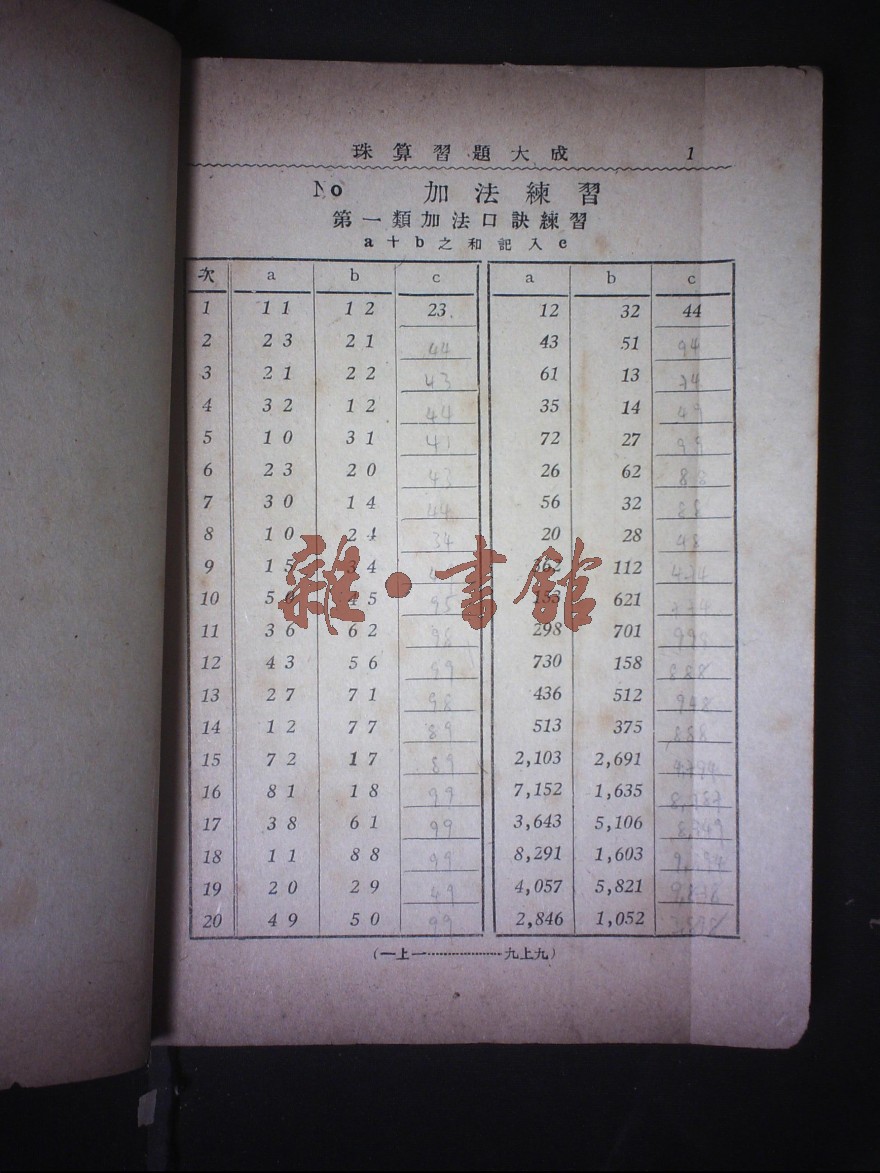 珠算習題大成 1
No 加法練習
第一類加法口訣練習
a+b之和記入c
次 a b c a b c
1 11 12 23 12 32 44
2 23 21 44 43 51 94
3 21 22 43 61 13 74
4 32 12 44 35 14 49
5 10 31 41 72 27 99
6 23 20 43 26 62 88
7 30 14 44 56 32 88
8 10 24 34 20 28 48
9 15 34 362 112 474
10 50 45 95 153 621
11 36 62 98 298 701 998
12 43 56 99 730 158 888
13 27 71 98 436 512 948
14 12 77 89 513 375 888
15 72 17 89 2,103 2,691
16 81 18 99 7,152 1,635
17 38 61 99 3,643 5,106 8,749
18 11 88 99 8,291 1,603
19 20 29 49 4,057 5,821
20 49 50 99 2,846 1,052
(一上一……………九上九)
雜·書館